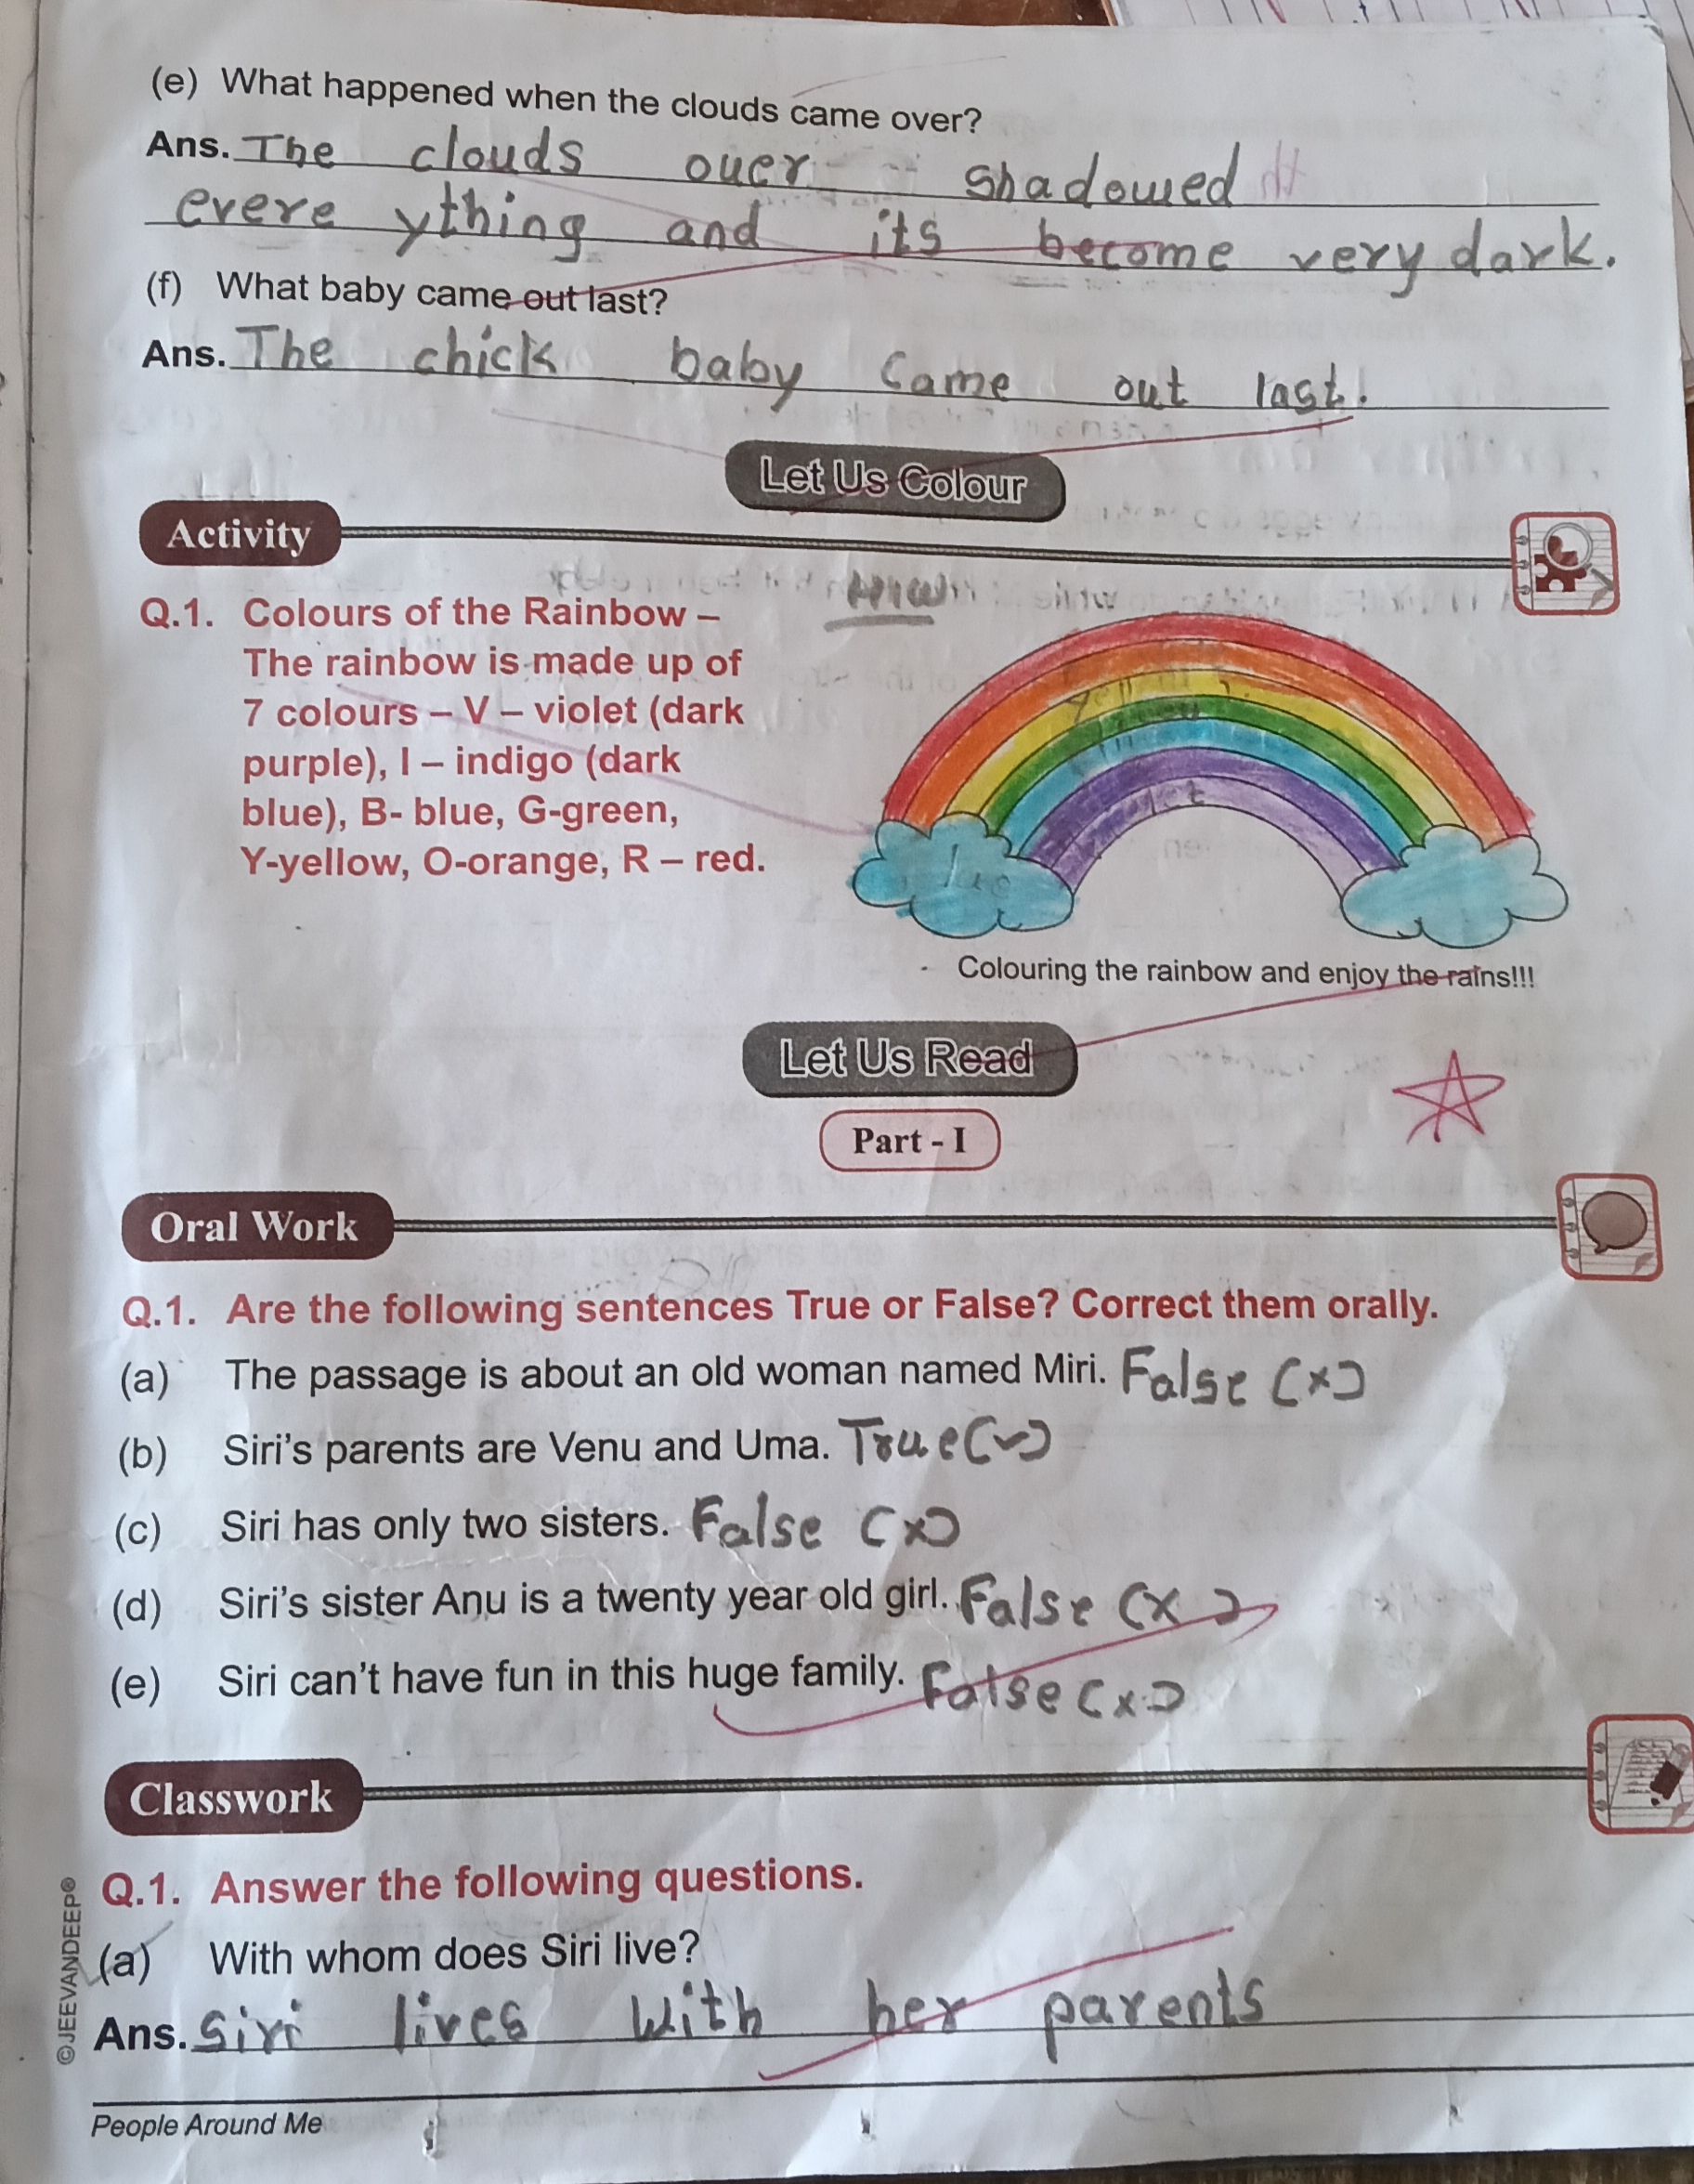 (e) What happened when the clouds came over?
Ans. The clouds over shadowed
evere ything and its become very dark.
(f) What baby came out last?
Ans. The chick baby came out last.
Let Us Colour
Activity
Q.1. Colours of the Rainbow –
The rainbow is made up of
7 colours – V – violet (dark
purple), I – indigo (dark
blue), B- blue, G-green,
Y-yellow, O-orange, R – red.
Colouring the rainbow and enjoy the rains!!!
Let Us Read
Part - I
Oral Work
Q.1. Are the following sentences True or False? Correct them orally.
(a) The passage is about an old woman named Miri. False (x)
(b) Siri's parents are Venu and Uma. True (✓)
(c) Siri has only two sisters. False (x)
(d) Siri's sister Anu is a twenty year old girl. False (x)
(e) Siri can't have fun in this huge family. False (x)
Classwork
Q.1. Answer the following questions.
(a) With whom does Siri live?
Ans. Siri lives with her parents
People Around Me
©JEEVANDEEP®